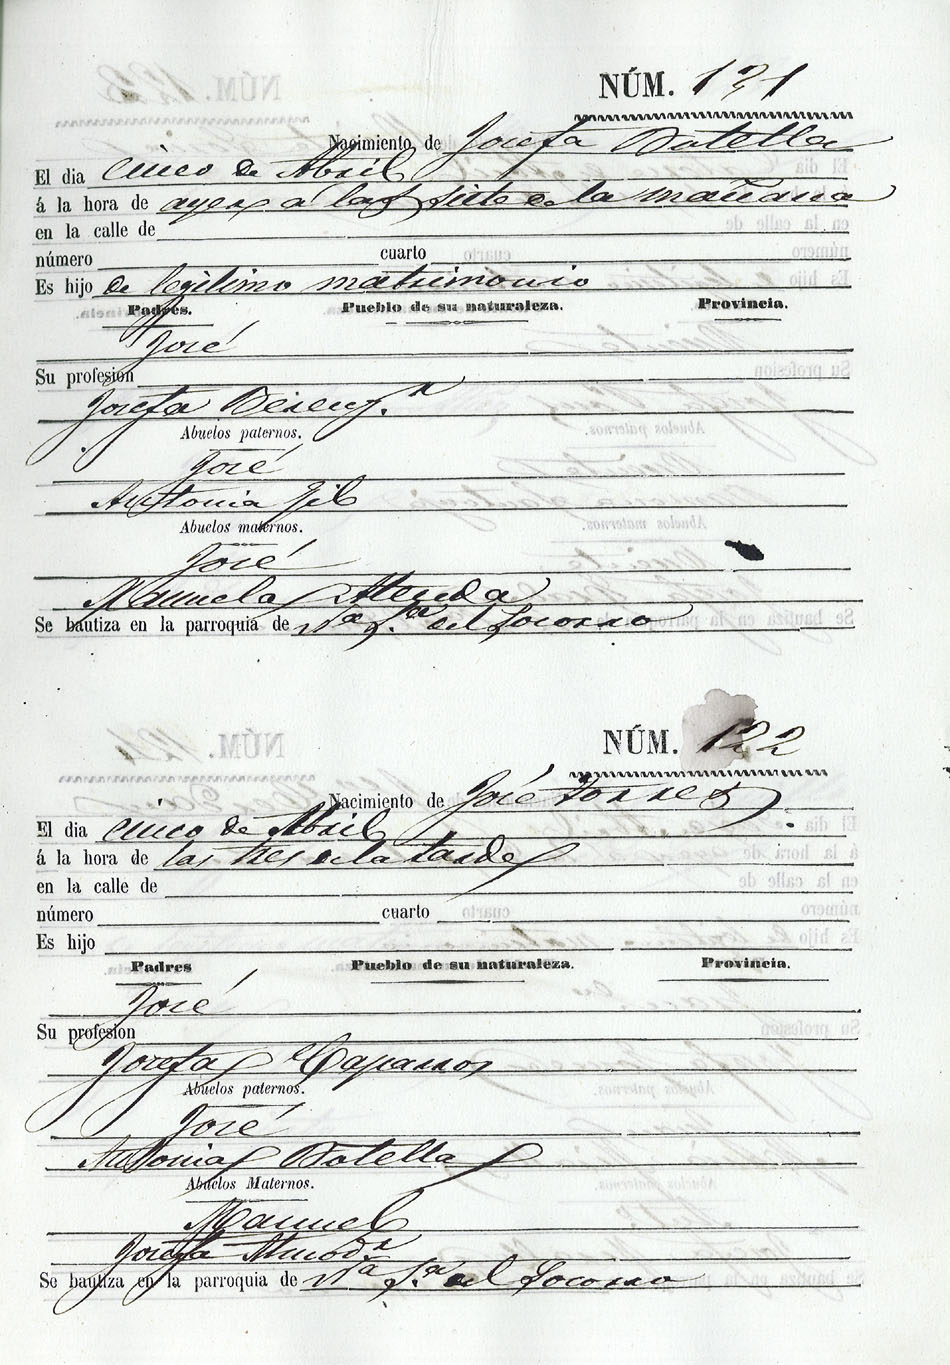 NÚM. 121
Nacimiento de Josefa Botella
El dia cinco de Abril
á la hora de ayer a las siete de la mañana
en la calle de
número cuarto
Es hijo de legitimo matrimonio
Padres. Pueblo de su naturaleza. Provincia.
José
Su profesion
Josefa
Abuelos paternos.
José
Antonia Gil
Abuelos maternos.
José
Manuela
Se bautiza en la parroquia de Ntra. Sra. del Socorro
NÚM. 122
Nacimiento de José Torres
El dia cinco de Abril
á la hora de las tres de la tarde
en la calle de
número cuarto
Es hijo
Padres Pueblo de su naturaleza. Provincia.
José
Su profesion
Josefa Caparros
Abuelos paternos.
José
Antonia Botella
Abuelos Maternos.
Manuel
Josefa
Se bautiza en la parroquia de Ntra. Sra. del Socorro